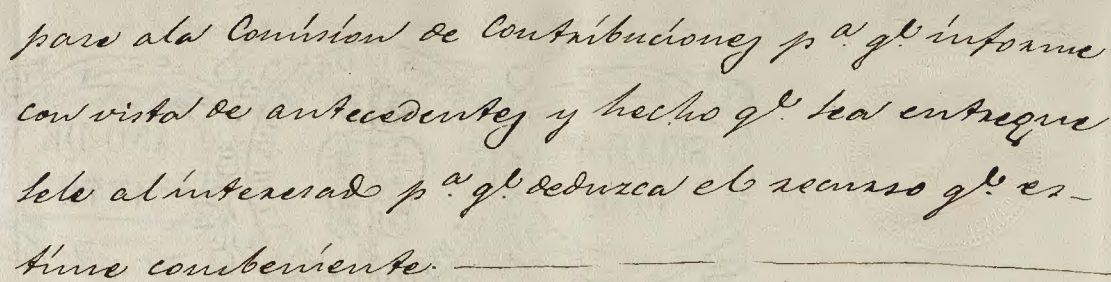 pase ala Comision de Contribuciones p.ª q.e informe
con vista de antecedentes y hecho q.e sea entregue
sele al interesado p.ª q.e deduzca el recurso q.e es-
time combeniente.